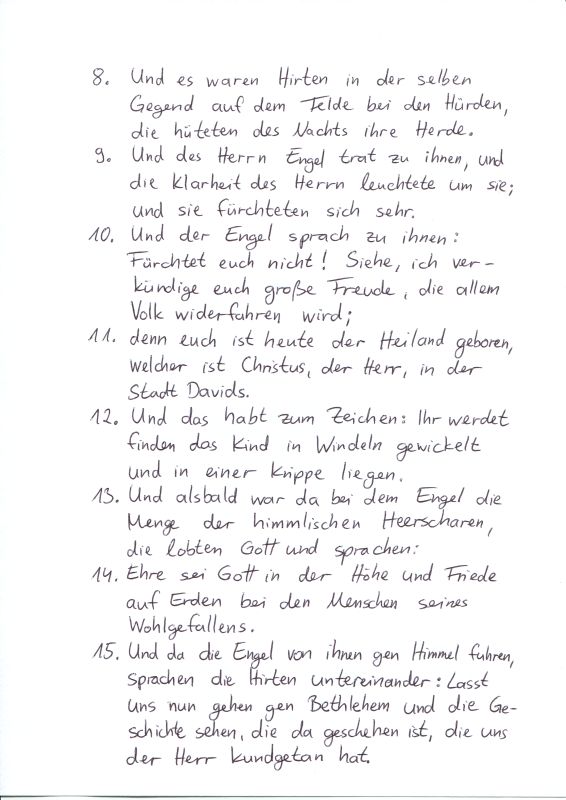 8. Und es waren Hirten in der selben
Gegend auf dem Felde bei den Hürden,
die hüteten des Nachts ihre Herde.
9. Und des Herrn Engel trat zu ihnen, und
die Klarheit des Herrn leuchtete um sie;
und sie fürchteten sich sehr.
10. Und der Engel sprach zu ihnen:
Fürchtet euch nicht! Siehe, ich ver-
kündige euch große Freude, die allem
Volk widerfahren wird;
11. denn euch ist heute der Heiland geboren,
welcher ist Christus, der Herr, in der
Stadt Davids.
12. Und das habt zum Zeichen: Ihr werdet
finden das Kind in Windeln gewickelt
und in einer Krippe liegen.
13. Und alsbald war da bei dem Engel die
Menge der himmlischen Heerscharen,
die lobten Gott und sprachen:
14. Ehre sei Gott in der Höhe und Friede
auf Erden bei den Menschen seines
Wohlgefallens.
15. Und da die Engel von ihnen gen Himmel fuhren,
sprachen die Hirten untereinander: Lasst
uns nun gehen gen Bethlehem und die Ge-
schichte sehen, die da geschehen ist, die uns
der Herr kundgetan hat.